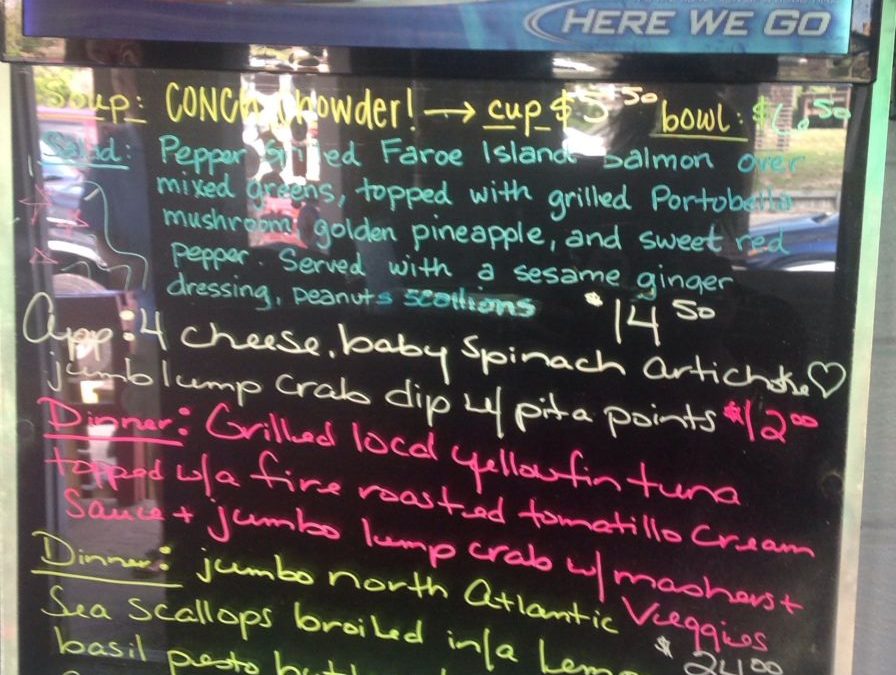 HERE WE GO
Soup: CONCH Chowder! → cup $5.50 bowl: $6.50
Salad: Pepper Grilled Faroe Island Salmon over
mixed greens, topped with grilled Portobello
mushroom, golden pineapple, and sweet red
pepper. Served with a sesame ginger
dressing, peanuts scallions $14.50
App: 4 cheese, baby Spinach Artichoke ♡
jumbo lump crab dip w/ pita points $12.00
Dinner: Grilled local yellowfin tuna
topped w/a fire roasted tomatillo cream
Sauce + jumbo lump crab w/ mashers +
Veggies
Dinner: jumbo north Atlantic
Sea scallops broiled in/a
$24.00
basil pesto